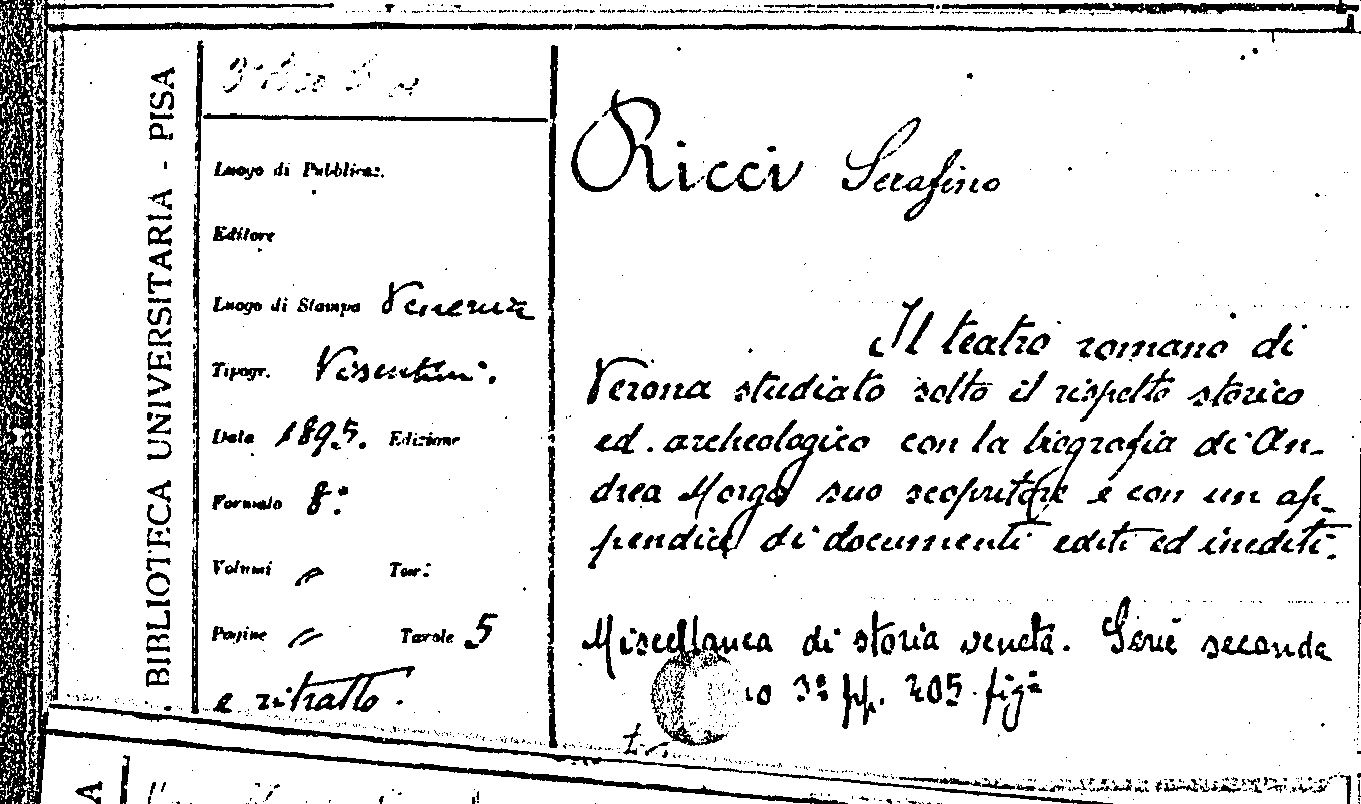 BIBLIOTECA UNIVERSITARIA - PISA
Luogo di Pubblicaz.
Editore
Luogo di Stampa Venezia
Tipogr. Visentini.
Data 1895. Edizione
Formato 8°
Volumi " Tom:
Pagine " Tavole 5
e ritratto.
Ricci Serafino
Il teatro romano di
Verona studiato sotto il rispetto storico
ed archeologico con la biografia di An-
drea Monga suo scopritore e con un ap-
pendice di documenti editi ed inediti.
Miscellanea di storia veneta. Serie seconda
3° pp. 205 fig.